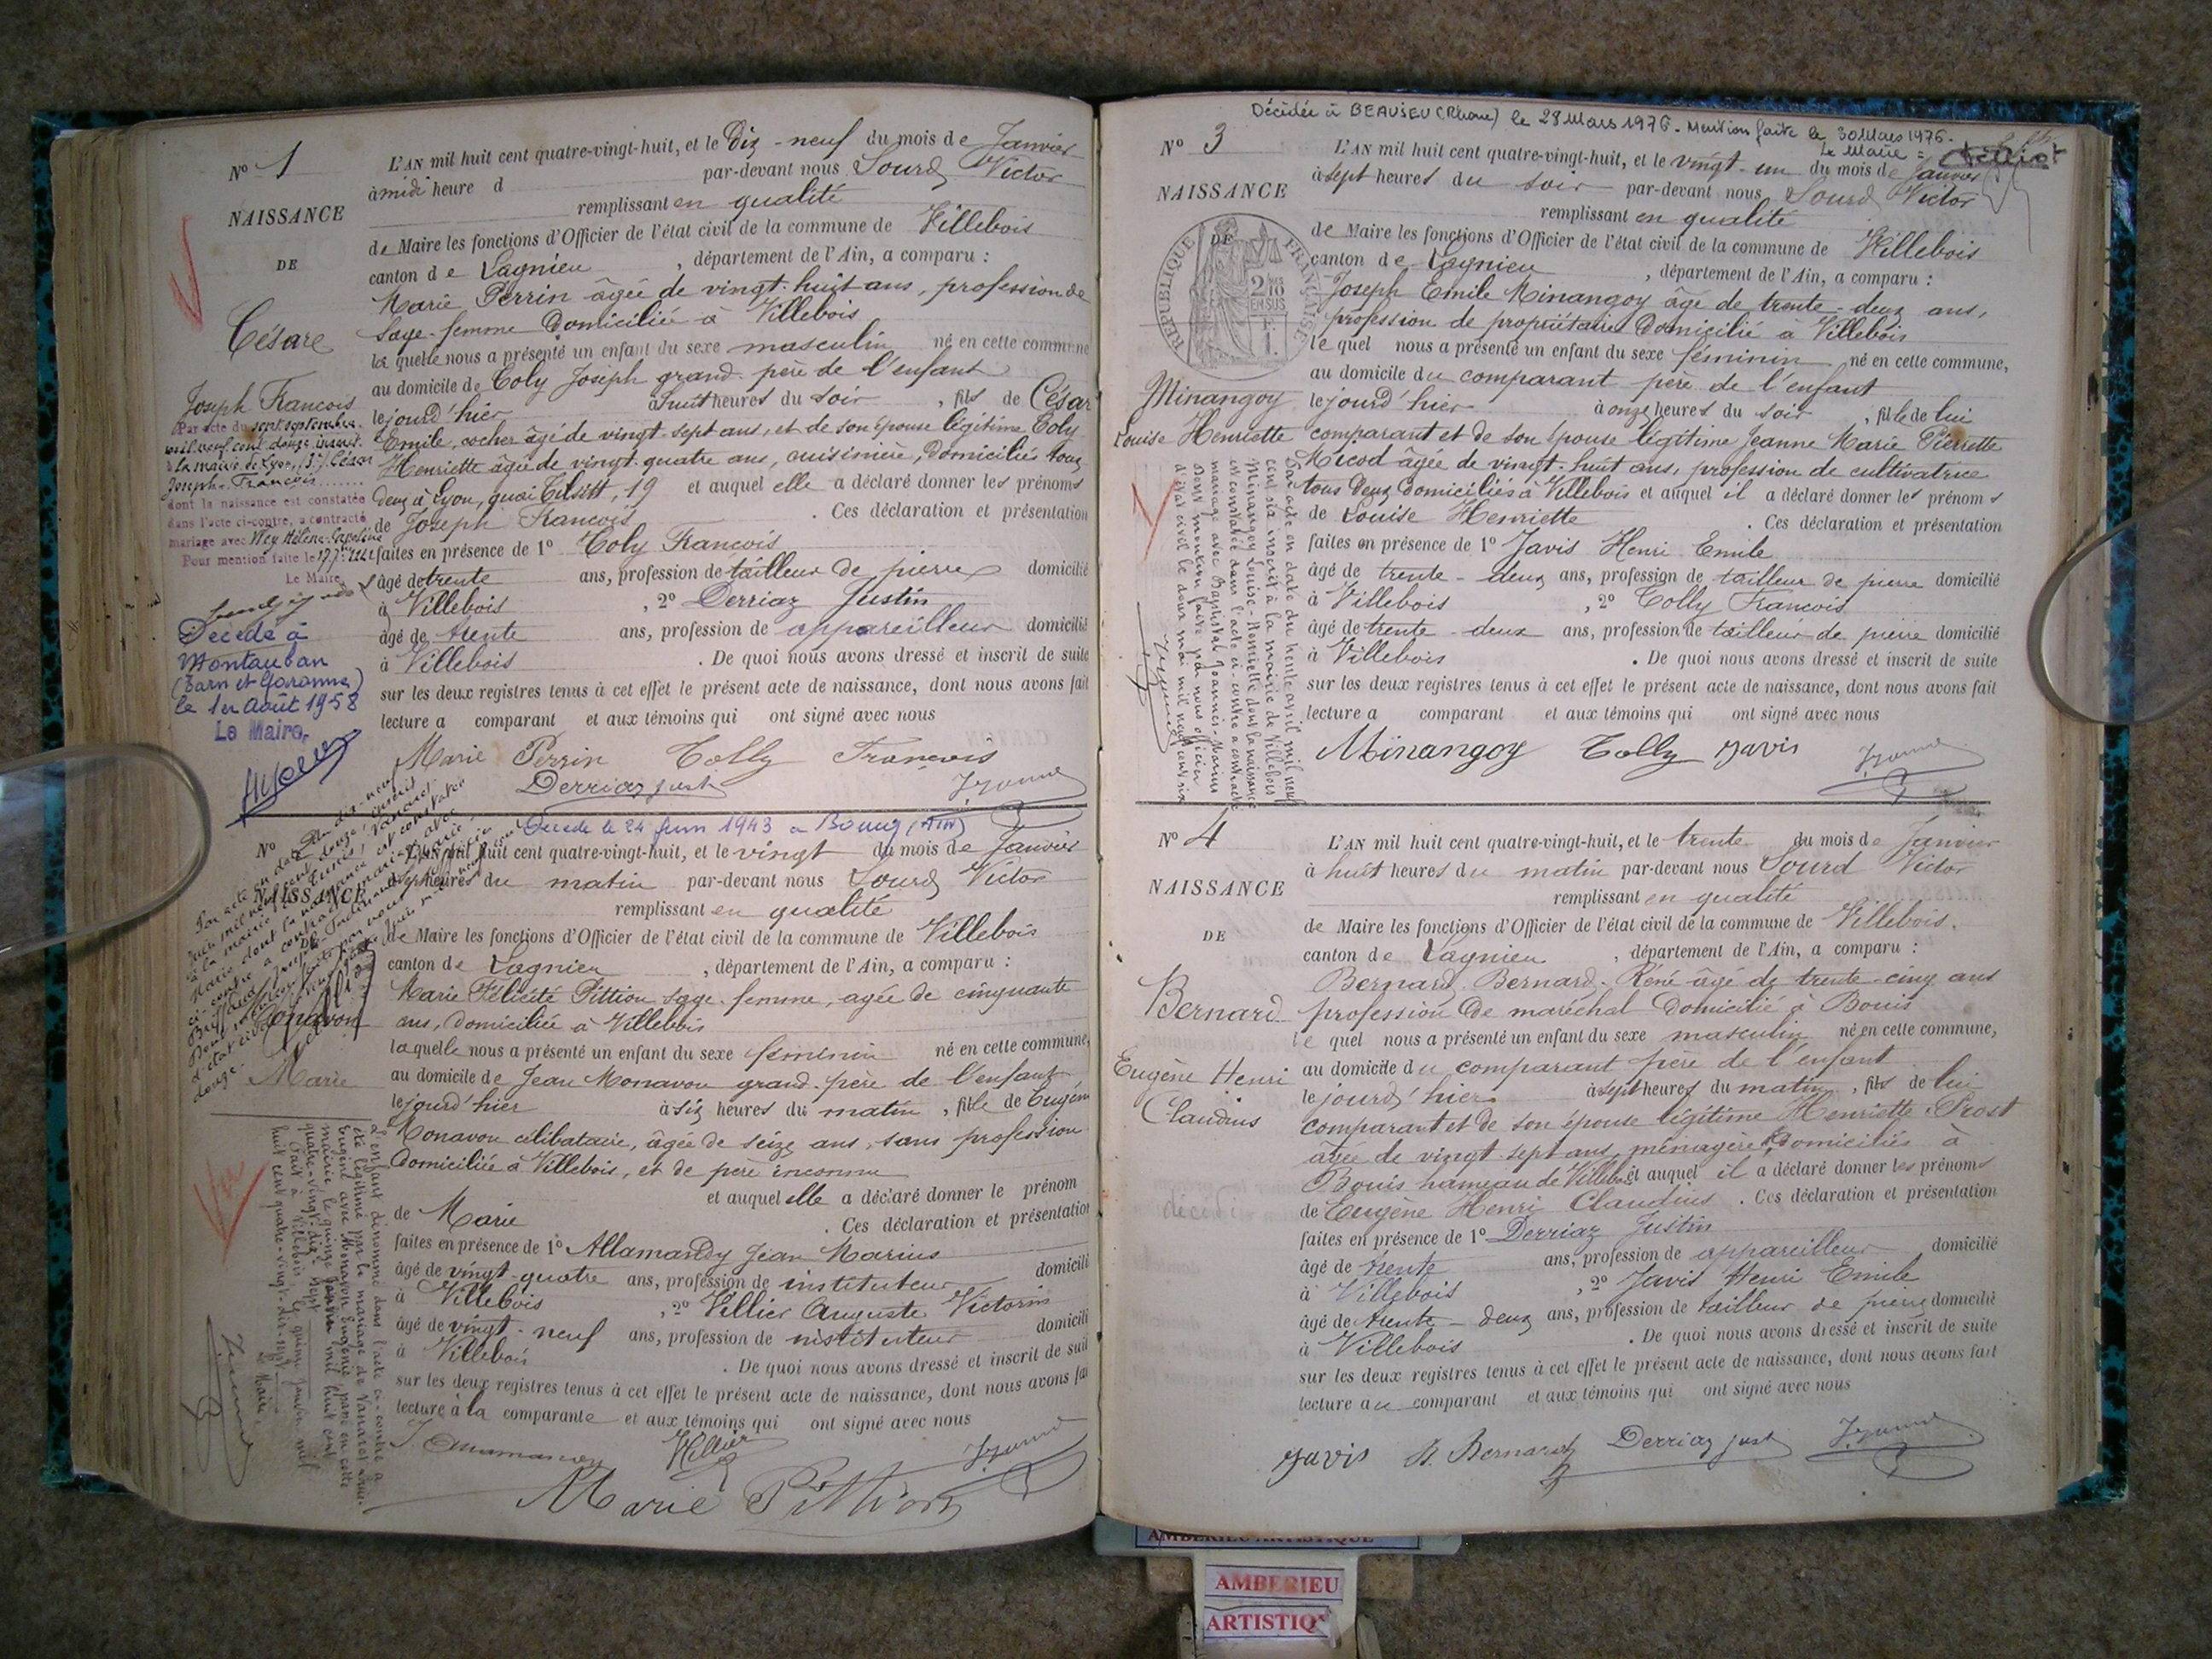 N° 1
NAISSANCE
DE
Césare
Joseph Francois
Par acte du sept septembre
mil neuf cent douze inscrit
à la mairie de Lyon, César
Joseph-Francois
dont la naissance est constatée
dans l'acte ci-contre, a contracté
mariage avec Hélène
Pour mention faite le
Le Maire,
Décédé à
Montauban
(Tarn et Garonne)
le 1er Août 1958
Le Maire,
L'AN mil huit cent quatre-vingt-huit, et le Dix-neuf du mois de Janvier
à midi heure d par-devant nous Sourd Victor
remplissant en qualité
de Maire les fonctions d'Officier de l'état civil de la commune de Villebois
canton de Lagnieu, département de l'Ain, a comparu :
Marie Perrin âgée de vingt-huit ans, profession de
Sage-femme Domiciliée à Villebois
laquelle nous a présenté un enfant du sexe masculin né en cette commune
au domicile de Coly Joseph grand-père de l'enfant
le jourd'hier à huit heures du soir, fils de César
Emile, cocher âgé de vingt-sept ans, et de son épouse légitime Coly
Henriette âgée de vingt-quatre ans, cuisinière, Domiciliés tous
deux à Lyon, quai Tilsitt, 19 et auquel elle a déclaré donner les prénoms
de Joseph Francois. Ces déclaration et présentation
faites en présence de 1° Coly Francois
âgé de trente ans, profession de tailleur de pierre domicilié
à Villebois, 2° Derriaz Justin
âgé de trente ans, profession de appareilleur domicilié
à Villebois. De quoi nous avons dressé et inscrit de suite
sur les deux registres tenus à cet effet le présent acte de naissance, dont nous avons fait
lecture a comparant et aux témoins qui ont signé avec nous
Marie Perrin Colly Francois
Derriaz just
Décédé le 24 Juin 1943 à Bourg (Ain)
N°
NAISSANCE
Monavon
Marie
L'AN mil huit cent quatre-vingt-huit, et le vingt du mois de Janvier
à sept heures du matin par-devant nous Sourd Victor
remplissant en qualité
de Maire les fonctions d'Officier de l'état civil de la commune de Villebois
canton de Lagnieu, département de l'Ain, a comparu :
Marie Félicité Pittion sage-femme, agée de cinquante
ans, domiciliée à Villebois
laquelle nous a présenté un enfant du sexe féminin né en cette commune,
au domicile de Jean Monavon grand-père de l'enfant
le jourd'hier à six heures du matin, fille de Eugénie
Monavon célibataire, âgée de seize ans, sans profession
Domiciliée à Villebois, et de père inconnu
et auquel elle a déclaré donner le prénom
de Marie. Ces déclaration et présentation
faites en présence de 1° Allamandy Jean Marius
âgé de vingt-quatre ans, profession de instituteur domicilié
à Villebois, 2° Villier Auguste Victorin
âgé de vingt-neuf ans, profession de instituteur domicilié
à Villebois. De quoi nous avons dressé et inscrit de suit
sur les deux registres tenus à cet effet le présent acte de naissance, dont nous avons fai
lecture à la comparante et aux témoins qui ont signé avec nous
Villier
Marie Pittion
L'enfant dénommé dans l'acte ci-contre a
été légitimé par le mariage de Vanaret
Eugène avec Monavon Eugénie, passé en cette
mairie le quinze Janvier mil huit cent
quatre-vingt-dix-sept
Fait à Villebois le quinze Janvier mil
huit cent quatre-vingt-dix-sept
Le Maire,
Décédée à BEAUJEU (Rhône) le 28 Mars 1976. Mention faite le 30 Mars 1976.
Le Maire :
N° 3
NAISSANCE
DE
REPUBLIQUE FRANÇAISE
2/10 EN SUS
Minangoy
Louise Henriette
Par acte en date du trente avril mil neuf
cent six inscrit à la mairie de Villebois
Minangoy Louise-Henriette dont la naissance
est constatée dans l'acte ci-contre a contracté
mariage avec Baptistal Joannès-Marius
Dont mention faite par nous officier
d'état civil le deux mai mil neuf cent six
L'AN mil huit cent quatre-vingt-huit, et le vingt-un du mois de Janvier
à sept heures du soir par-devant nous Sourd Victor
remplissant en qualité
de Maire les fonctions d'Officier de l'état civil de la commune de Villebois
canton de Lagnieu, département de l'Ain, a comparu :
Joseph Emile Minangoy âgé de trente-deux ans,
profession de propriétaire Domicilié à Villebois
lequel nous a présenté un enfant du sexe féminin né en cette commune,
au domicile du comparant père de l'enfant
le jourd'hier à onze heures du soir, fille de lui
comparant et de son épouse légitime Jeanne Marie Pierrette
Micod âgée de vingt-huit ans, profession de cultivatrice
tous Deux Domiciliés à Villebois et auquel il a déclaré donner les prénoms
de Louise Henriette. Ces déclaration et présentation
faites en présence de 1° Javis Henri Emile
âgé de trente-deux ans, profession de tailleur de pierre domicilié
à Villebois, 2° Colly Francois
âgé de trente-deux ans, profession de tailleur de pierre domicilié
à Villebois. De quoi nous avons dressé et inscrit de suite
sur les deux registres tenus à cet effet le présent acte de naissance, dont nous avons fait
lecture a comparant et aux témoins qui ont signé avec nous
Minangoy Colly Javis
N° 4
NAISSANCE
DE
Bernard
Eugène Henri
Claudius
décédé
L'AN mil huit cent quatre-vingt-huit, et le trente du mois de Janvier
à huit heures du matin par-devant nous Sourd Victor
remplissant en qualité
de Maire les fonctions d'Officier de l'état civil de la commune de Villebois.
canton de Lagnieu, département de l'Ain, a comparu :
Bernard Bernard-Réné âgé de trente-cinq ans
profession de maréchal Domicilié à Bouis
lequel nous a présenté un enfant du sexe masculin né en cette commune,
au domicile du comparant père de l'enfant
le jourd'hier à sept heures du matin, fils de lui
comparant et de son épouse légitime Henriette Prost
âgée de vingt-sept ans, ménagère, Domiciliés à
Bouis hameau de Villebois et auquel il a déclaré donner les prénoms
de Eugène Henri Claudius. Ces déclaration et présentation
faites en présence de 1° Derriaz Justin
âgé de trente ans, profession de appareilleur domicilié
à Villebois, 2° Javis Henri Emile
âgé de trente-deux ans, profession de tailleur de pierre domicilié
à Villebois. De quoi nous avons dressé et inscrit de suite
sur les deux registres tenus à cet effet le présent acte de naissance, dont nous avons fait
lecture au comparant et aux témoins qui ont signé avec nous
Javis B. Bernard Derriaz just
AMBERIEU ARTISTIQUE
AMBERIEU
ARTISTIQ